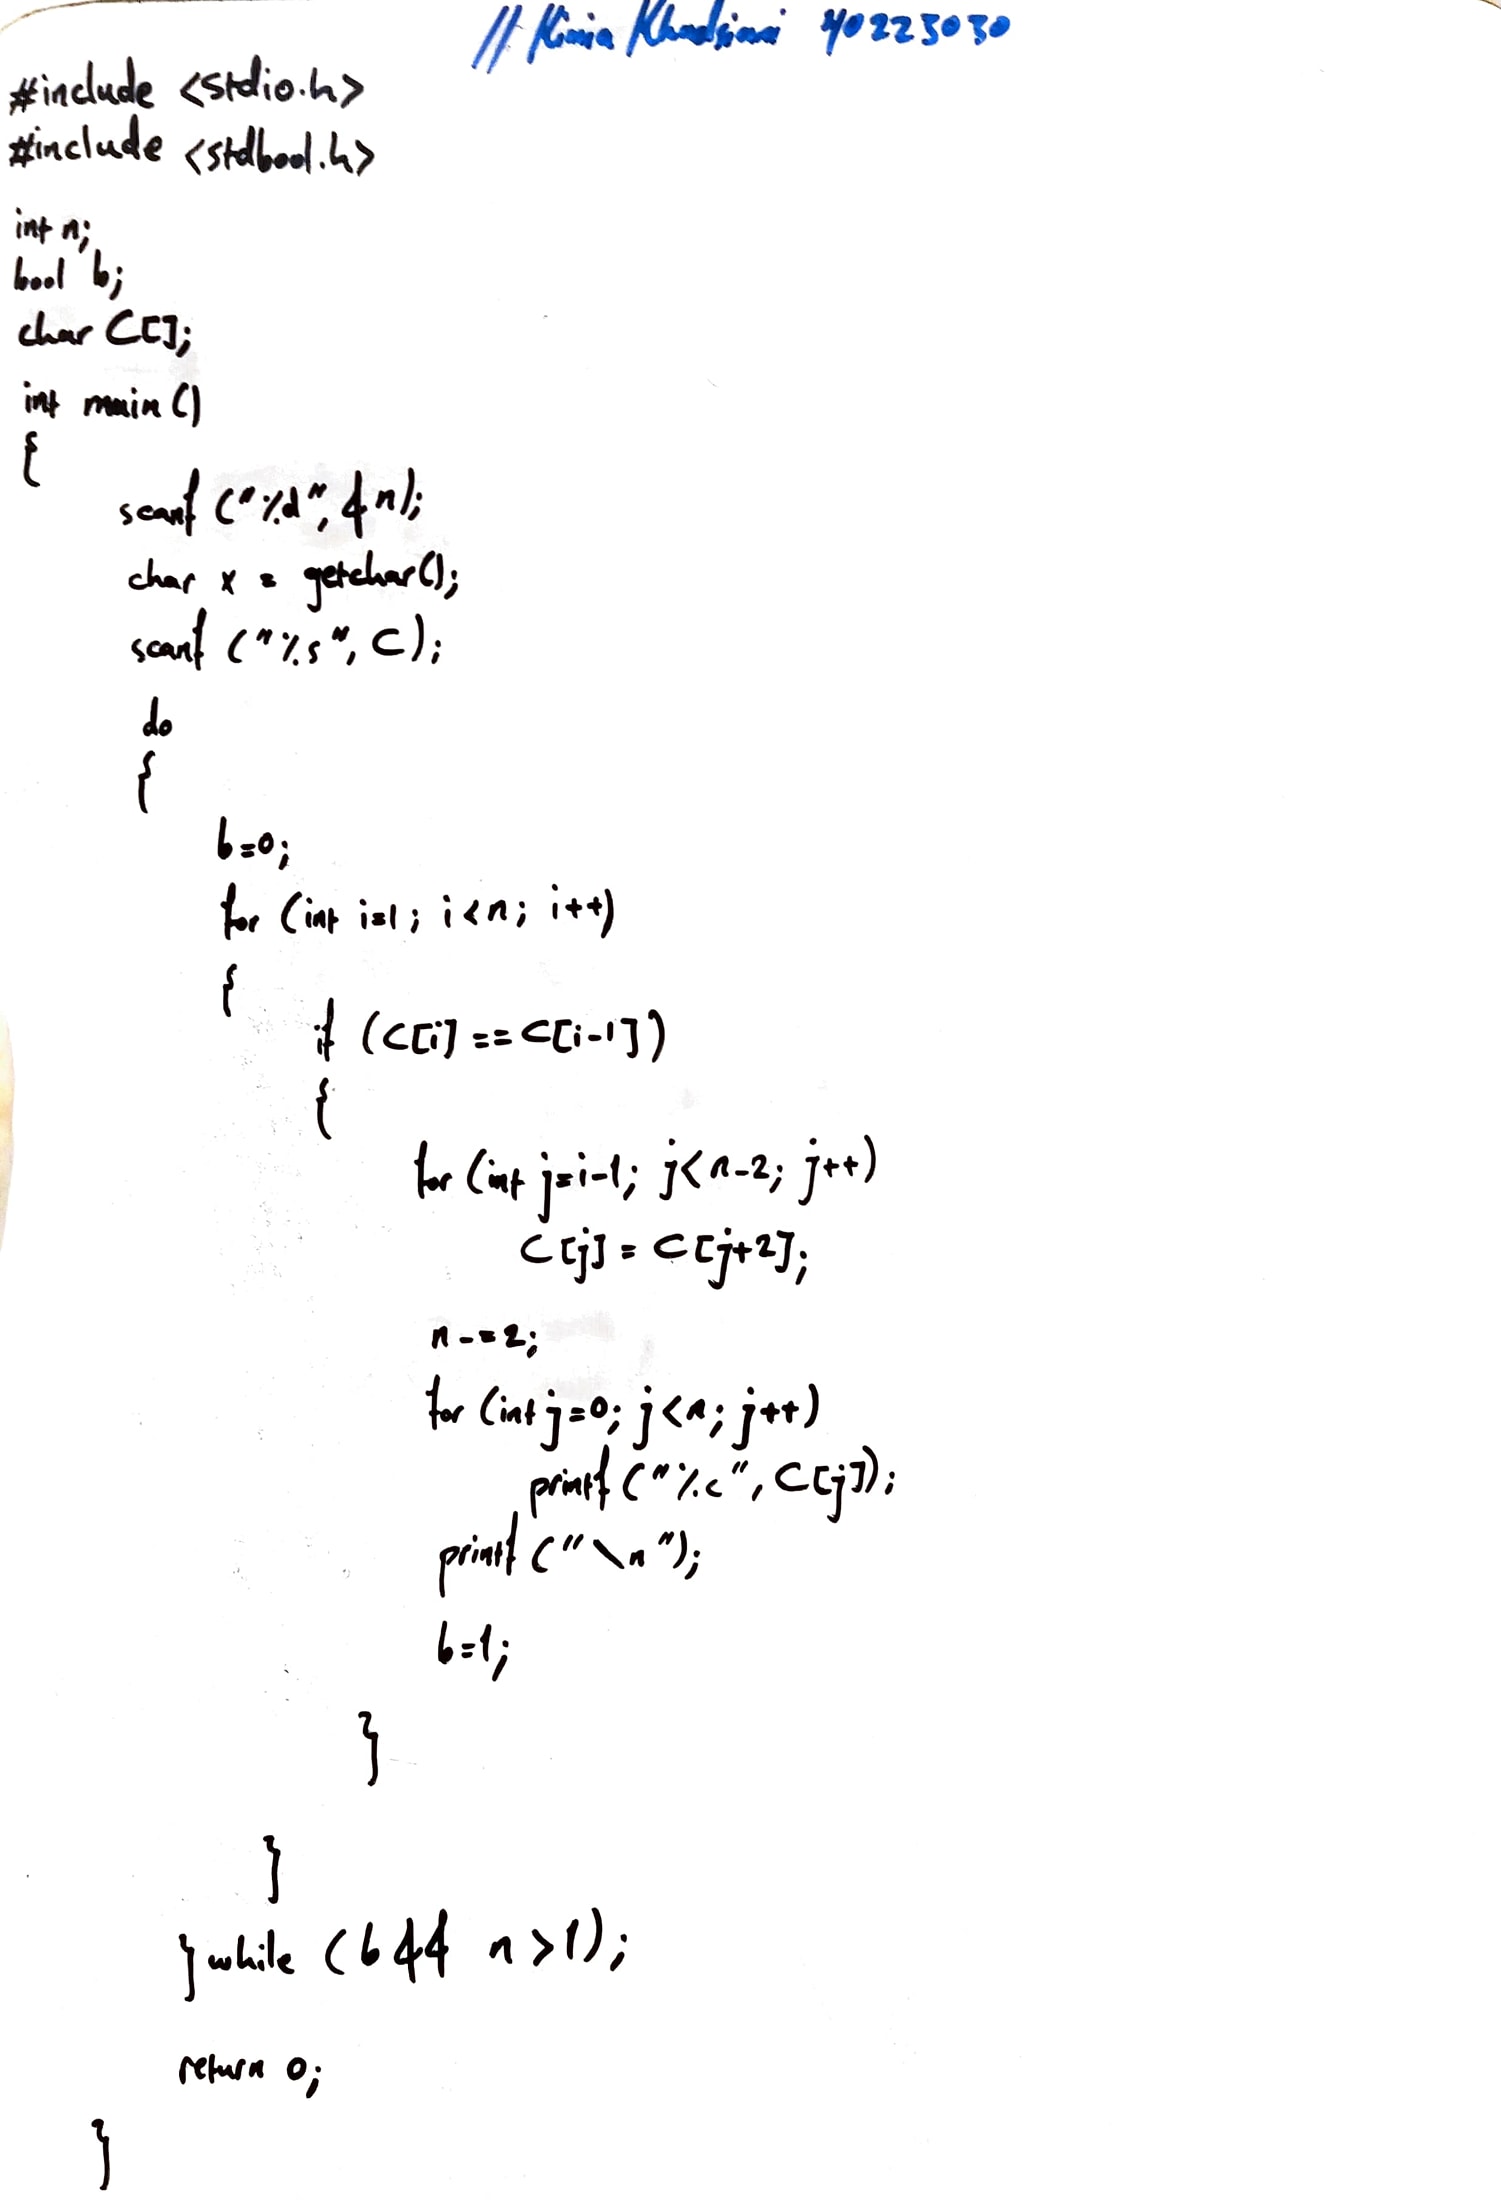 // Kimia 40223030
#include <stdio.h>
#include <stdbool.h>
int n;
bool b;
char C[];
int main()
{
scanf ("%d", &n);
char x = getchar();
scanf ("%s", C);
do
{
b=0;
for (int i=1; i<n; i++)
{
if (C[i] == C[i-1])
{
for (int j=i-1; j<n-2; j++)
C[j] = C[j+2];
n-=2;
for (int j=0; j<n; j++)
printf ("%c", C[j]);
printf ("\n");
b=1;
}
}
} while (b && n>1);
return 0;
}